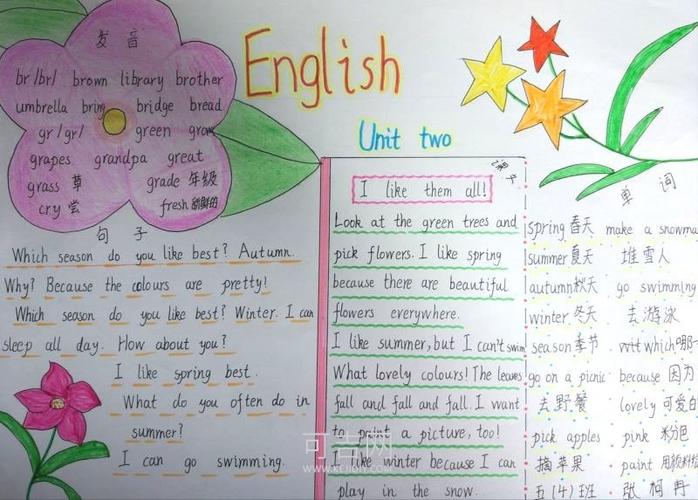 English
Unit two
发音
br /br/ brown library brother
umbrella bring bridge bread
gr /gr/ green grow
grapes grandpa great
grass 草 grade 年级
cry 尝 fresh 新鲜的
句子
Which season do you like best? Autumn.
Why? Because the colours are pretty!
Which season do you like best? Winter. I can
sleep all day. How about you?
I like spring best.
What do you often do in
summer?
I can go swimming.
I like them all!
Look at the green trees and
pick flowers. I like spring
because there are beautiful
flowers everywhere.
I like summer, but I can't swim
What lovely colours! The leaves
fall and fall and fall. I want
to paint a picture, too!
I like winter because I can
play in the snow.
单词
spring 春天 make a snowma
summer 夏天 堆雪人
autumn 秋天 go swimming
winter 冬天 去游泳
season 季节 which 哪
go on a picnic because 因为
去野餐 lovely 可爱的
pick apples pink 粉色
摘苹果 paint
五(4)班 张柯冉
可吉网